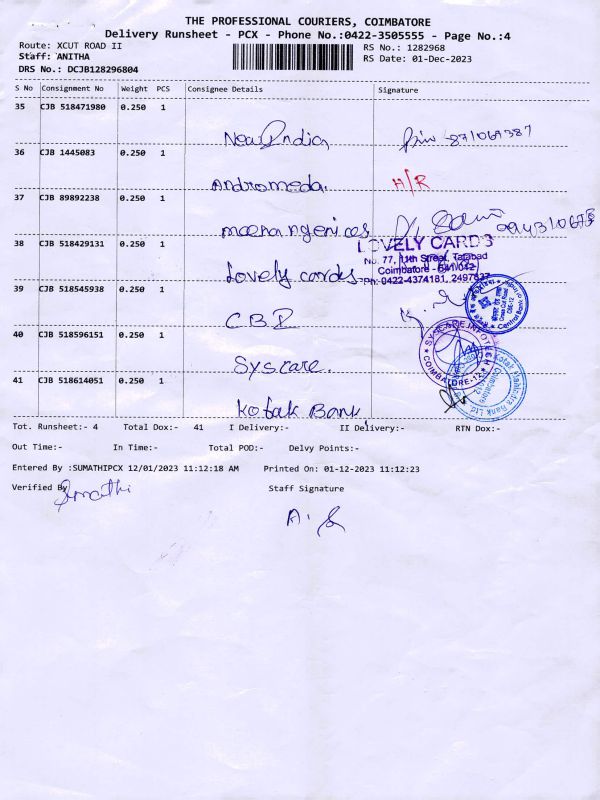 THE PROFESSIONAL COURIERS, COIMBATORE
Delivery Runsheet - PCX - Phone No.:0422-3505555 - Page No.:4
Route: XCUT ROAD II
RS No.: 1282968
Staff: ANITHA
RS Date: 01-Dec-2023
DRS No.: DCJB128296804
S No Consignment No Weight PCS Consignee Details Signature
35 CJB 518471980 0.250 1
New India
36 CJB 1445083 0.250 1
Andromeda. H/R
37 CJB 89892238 0.250 1
38 CJB 518429131 0.250 1
LOVELY CARDS
No. 77, 11th Street, Tatabad
Coimbatore - 641 042
Ph: 0422-4374181, 2497637
Lovely cards
39 CJB 518545938 0.250 1
CBI
40 CJB 518596151 0.250 1
SYSCARE INFOTECH
COIMBATORE-12
Syscare.
41 CJB 518614051 0.250 1
Kotak Mahindra Bank Ltd.
Coimbatore
Kotak Bank
Tot. Runsheet:- 4 Total Dox:- 41 I Delivery:- II Delivery:- RTN Dox:-
Out Time:- In Time:- Total POD:- Delvy Points:-
Entered By :SUMATHIPCX 12/01/2023 11:12:18 AM Printed On: 01-12-2023 11:12:23
Verified By Staff Signature
Sumathi
A. S